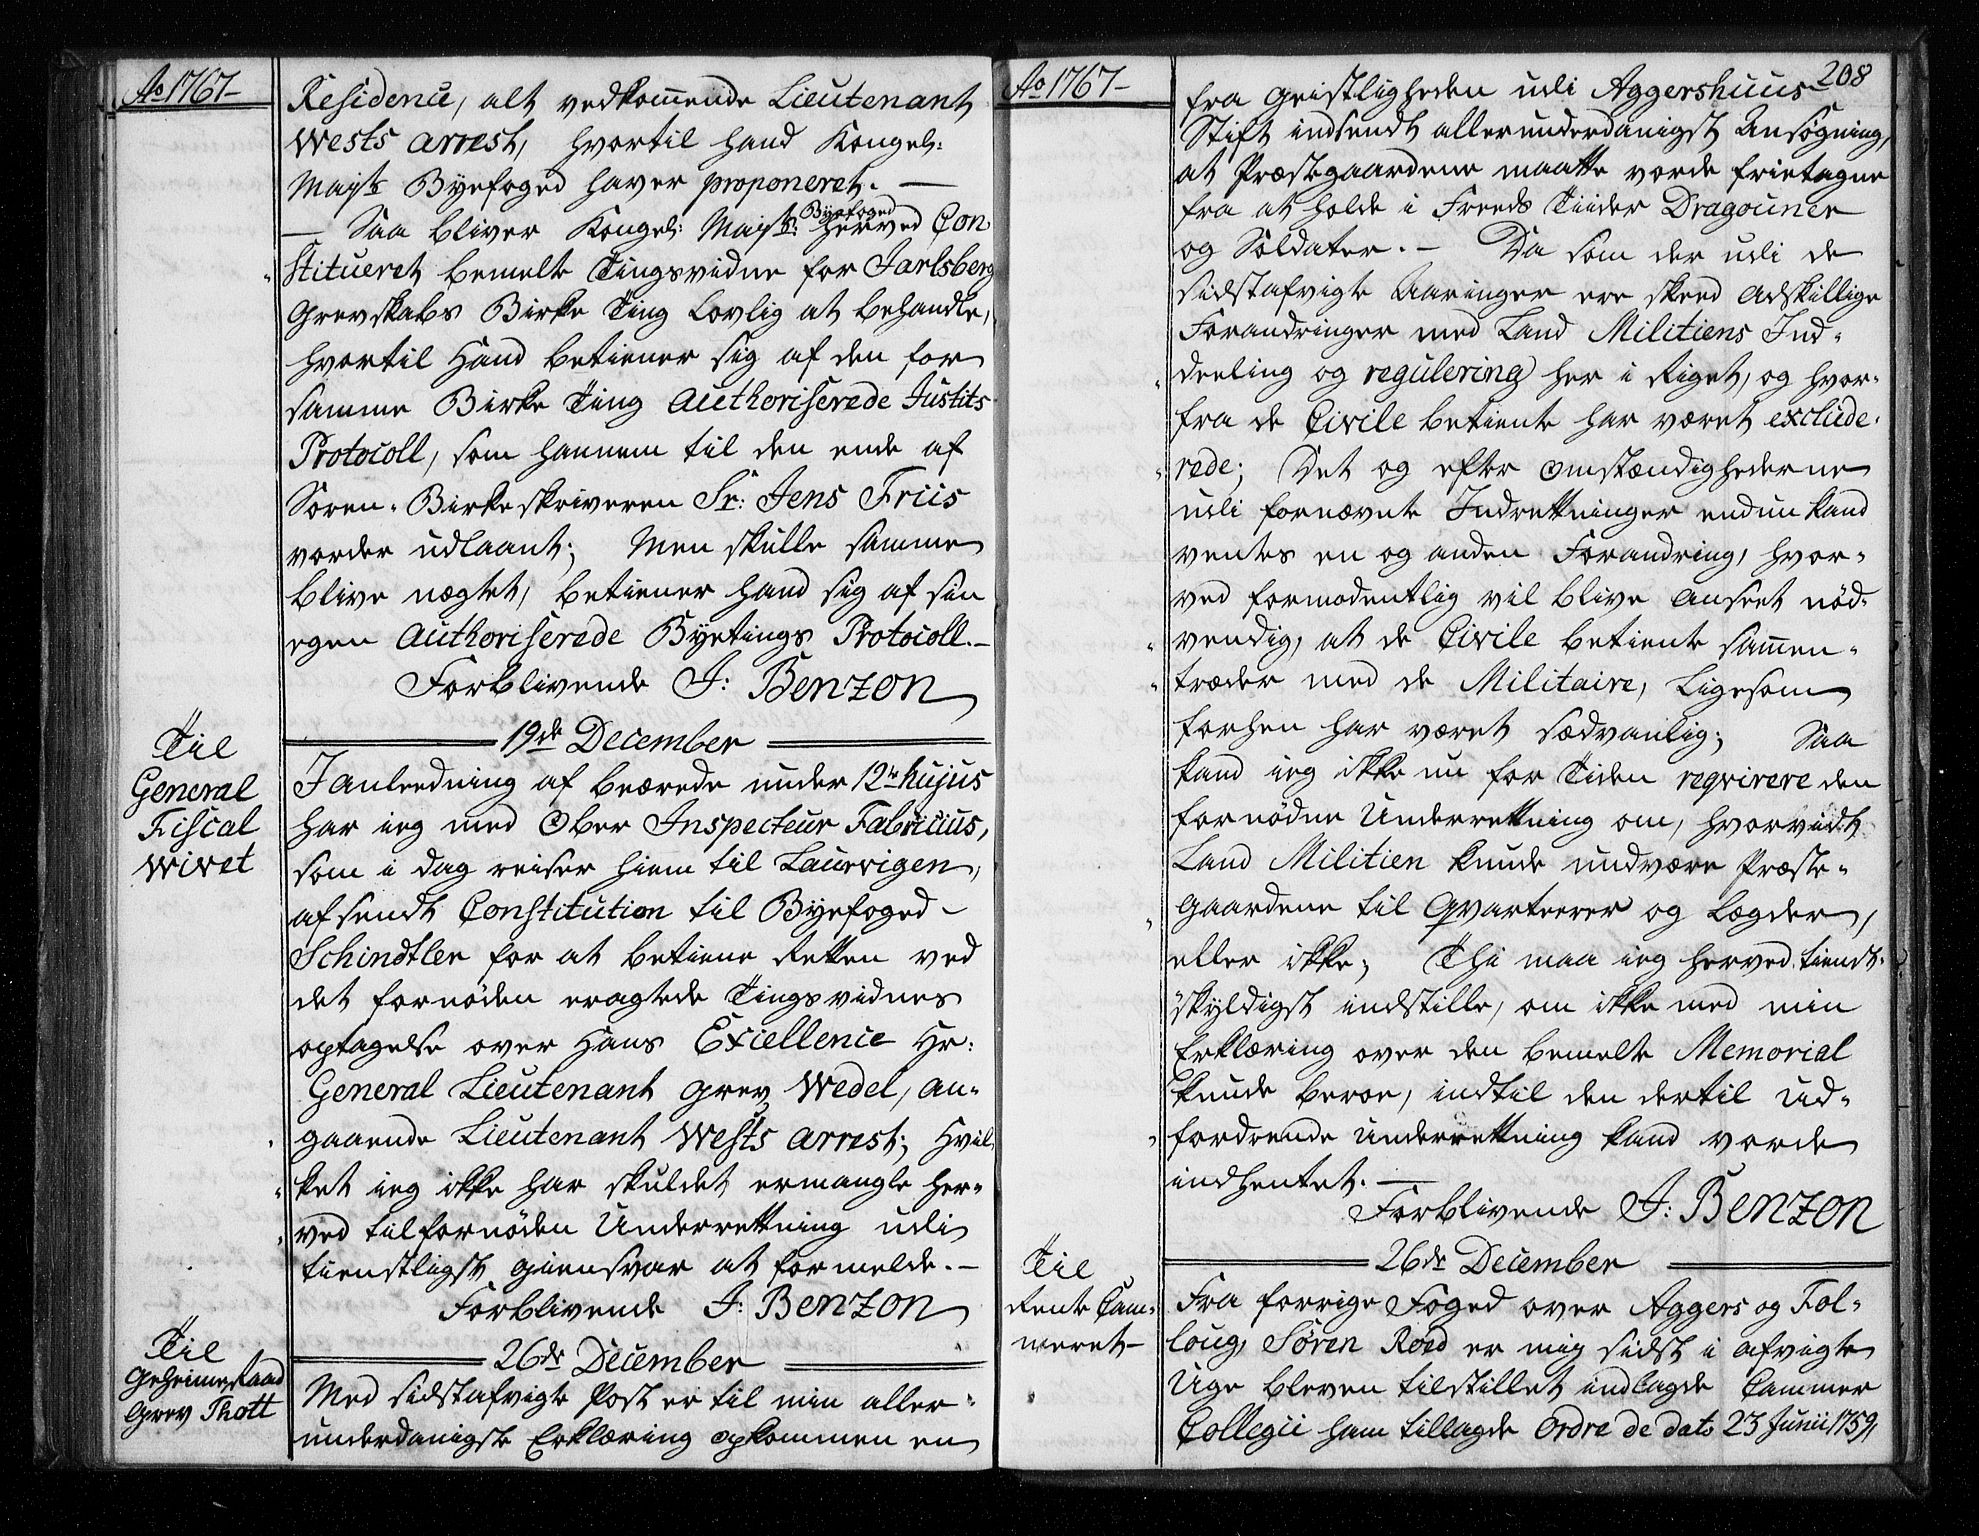 Ao 1767-
Residence, alt vedkom̅ende Lieutenant
Wests arrest, hvortil hand Kongel:
Mayts Byefoged haver proponeret. —
— Saa bliver Kongel: Mayts: Byefoged herved Con
stitueret bemelte Tingsvidne for Jarlsberg
Grevskabs Birke Ting lovlig at behandle,
hvortil Hand betiener sig af den for
samme Birke Ting authoriserede Justits
Protocoll, som hannem til den ende af
Soren-Birkeskriveren Sr: Jens Friis
vorder udlaant; Men skulle samme
blive nægtet, betiener hand sig af sin
egen authoriserede Byetings Protocoll.-
Forblivende J: Benzon
19de December
Til
General
Fiscal
Wivet
I anleedning af beærede under 12te hujus
har ieg med Ober Inspecteur Fabricius,
som i dag reiser hiem til Laurvigen,
afsendt Constitution til Byefoged
Schindtler for at betiene Retten ved
det fornøden eragtede Tingsvidnes
optagelse over Hans Excellence Hr:
General Lieutenant Grev Wedel, an-
gaaende Lieutenant Wests arrest; Hvil-
ket ieg ikke har skuldet ermangle her-
ved til fornøden Underrettning udi
tienstligst giensvar at formelde.-
Forblivende J: Benzon
26de December
Til
Geheime Raad
Grev Thott
Med sidstafvigte Post er til min aller-
underdanigste Erklæring opkommen en
Ao 1767-
208
fra Geistligheden udi Aggershuus
Stift indsendt allerunderdanigst Ansøgning,
at Præstegaardene maatte vorde frietagne
fra at holde i Freeds Tiider Dragouner
og Soldater.- Da som der udi de
sidstafvigte Aaringer ere skeed adskillige
Forandringer med Land Militiens Ind-
deeling og regulering her i Riget, og hvor-
fra de Civile betiente har været exclude-
rede; Det og efter omstændighederne
udi fornævnte Indrettninger endnu kand
ventes en og anden Forandring, hvor-
ved formodentlig vil blive anseet nød-
vendig, at de Civile betiente sam̅en-
træder med de Militaire, Ligesom
forhen har været sædvanlig; Saa
kand ieg ikke nu for Tiden reqvirere den
fornødne Underrettning om, hvorvidt
Land Militien kunde undvære Præste-
Gaardene til Qvarteerer og Lægder,
eller ikke; Thi maa ieg herved tienst-
skyldigst indstille, om ikke med min
Erklæring over den bemelte Memorial
kunde beroe, indtil den dertil ud-
fordrende Underrettning kand vorde
indhentet.-
Forblivende J: Benzon
26de December
Til
Rente Cam-
meret-
Fra forrige Foged over Aggers og Fol-
loug, Søren Roed er mig sidst i afvigte
Uge bleven tilstillet indlagde Cammer
Collegii ham tillagde Ordre de dato 23 Junii 1759,